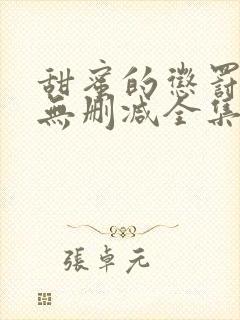 甜蜜的懲罰
無刪減全集
張卓元